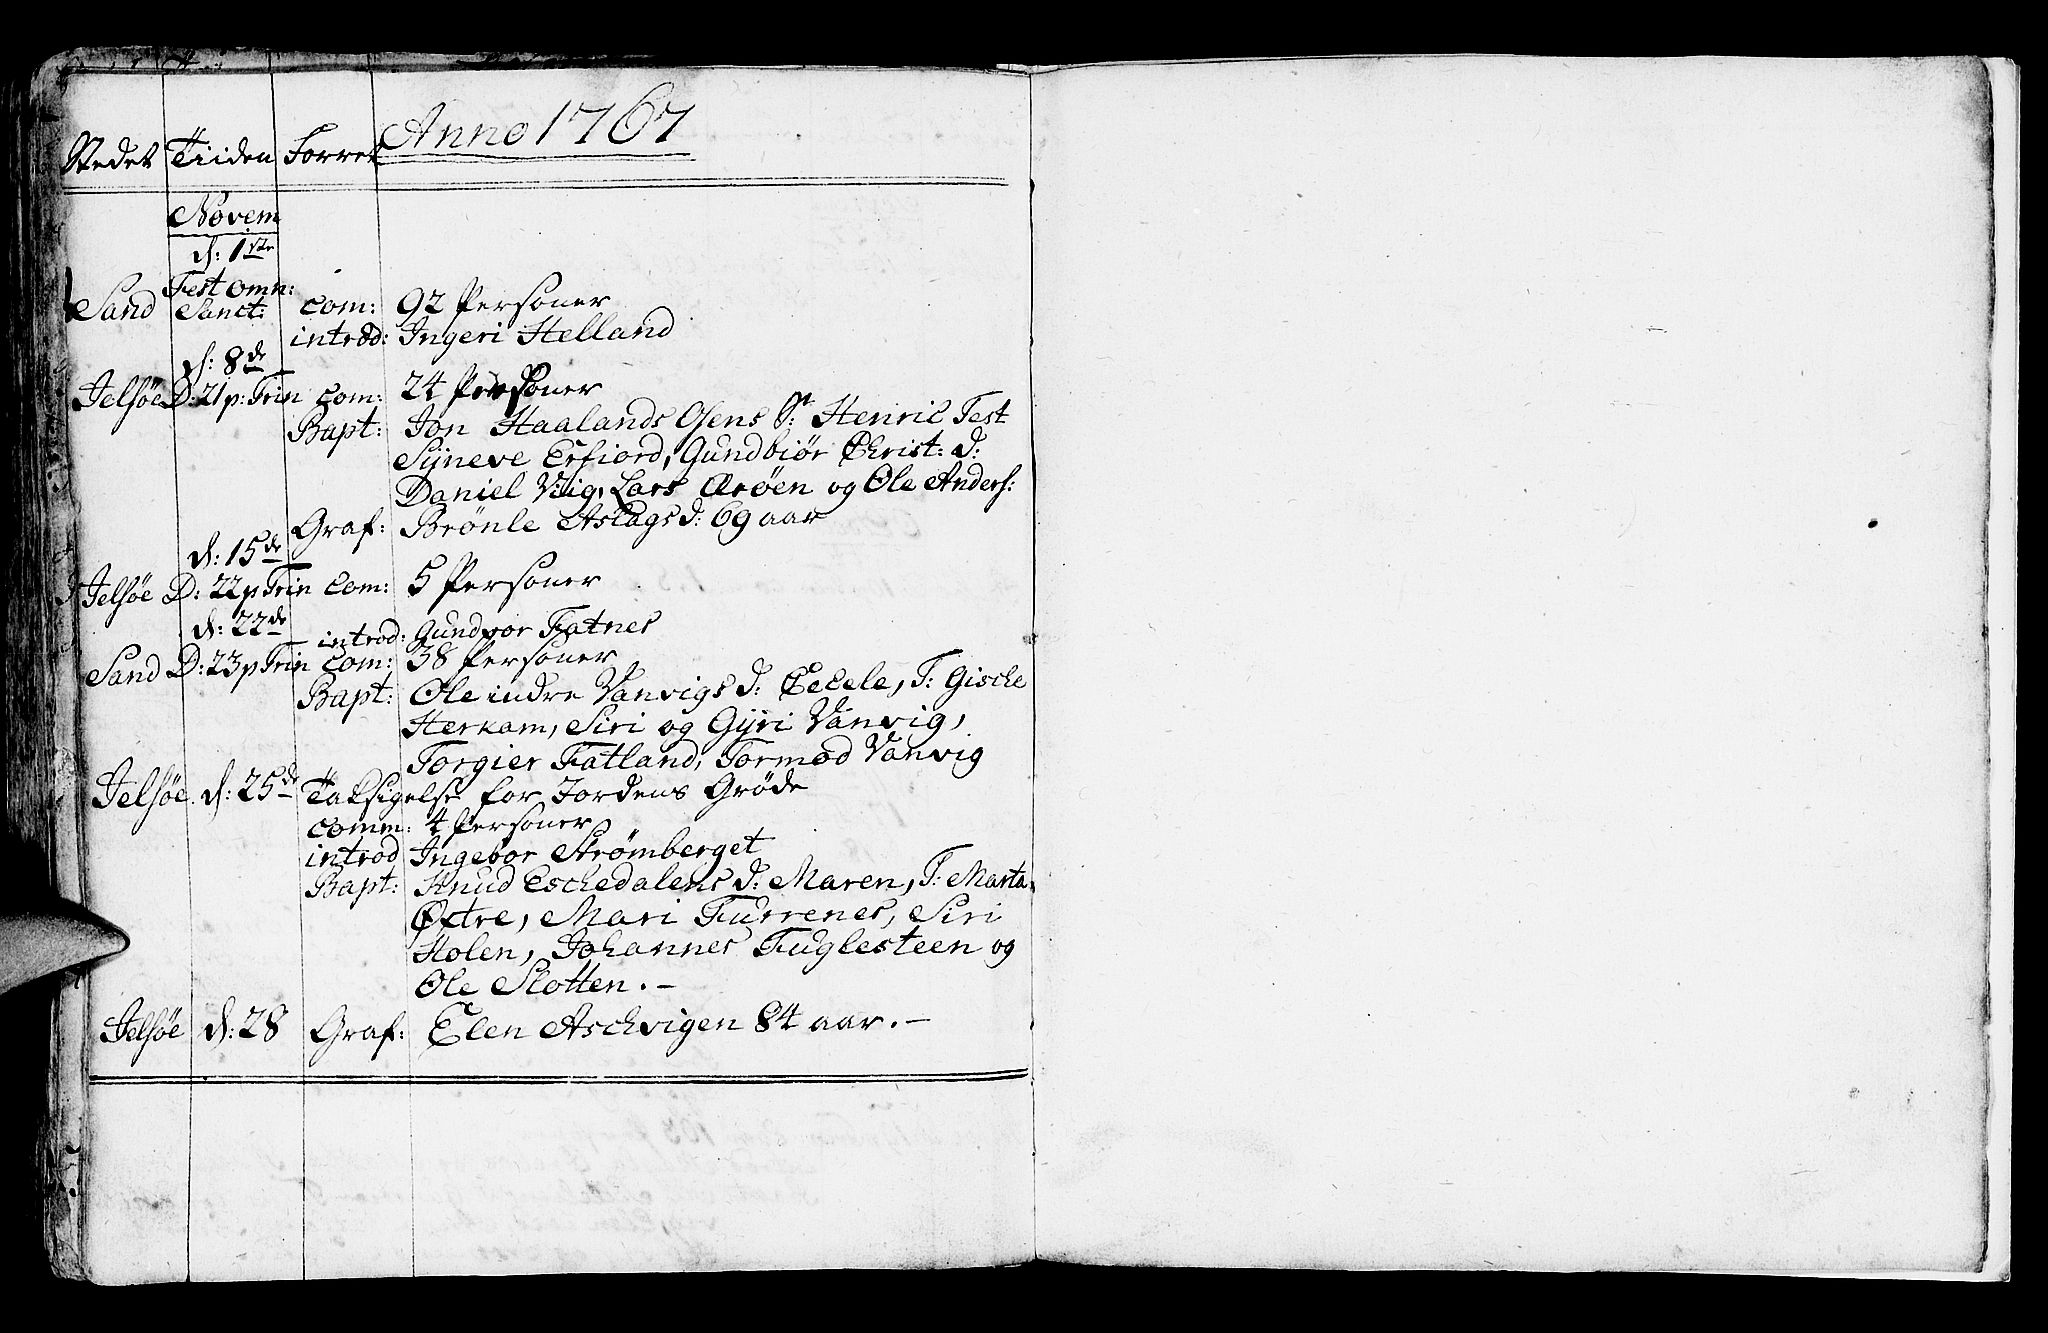 Anno 1767
Stedet Tiiden Forret
Novem
d: 1ste
Fest omn:
Sand Sanct: Com: 92 Personer
introd: Ingeri Helland
d: 8de
Jelsøe D: 21 p: Trin Com: 24 Personer
Bapt: Jon Haalands Osens S: Henric Test
Syneve Erfiord, Gundbiør Christ: d:
Daniel Viig, Lars Ærøen og Ole Anders:
Graf: Brønle Aslags d: 69 aar
d: 15de
Jelsøe D: 22 p Trin Com: 5 Personer
d: 22de introd: Gundvor Fatnes
Sand D: 23 p Trin Com: 38 Personer
Bapt: Ole indre Vanvigs d: T: Gische
Herkam, Siri og Gyri Vanvig,
Torgier Fatland, Tormod Vanvig
Jelsøe d: 25de Taksigelse for Jordens Grøde
Comm: 4 Personer
introd Ingebor Strømberget
Bapt: Knud Eschedalens d: Maren, T: Marta
Øxtre, Mari Furrenes, Siri
Holen, Johannes Fuglesteen og
Ole Slotten. –
Jelsøe d: 28 Graf: Elen Aschvigen 84 aar. –